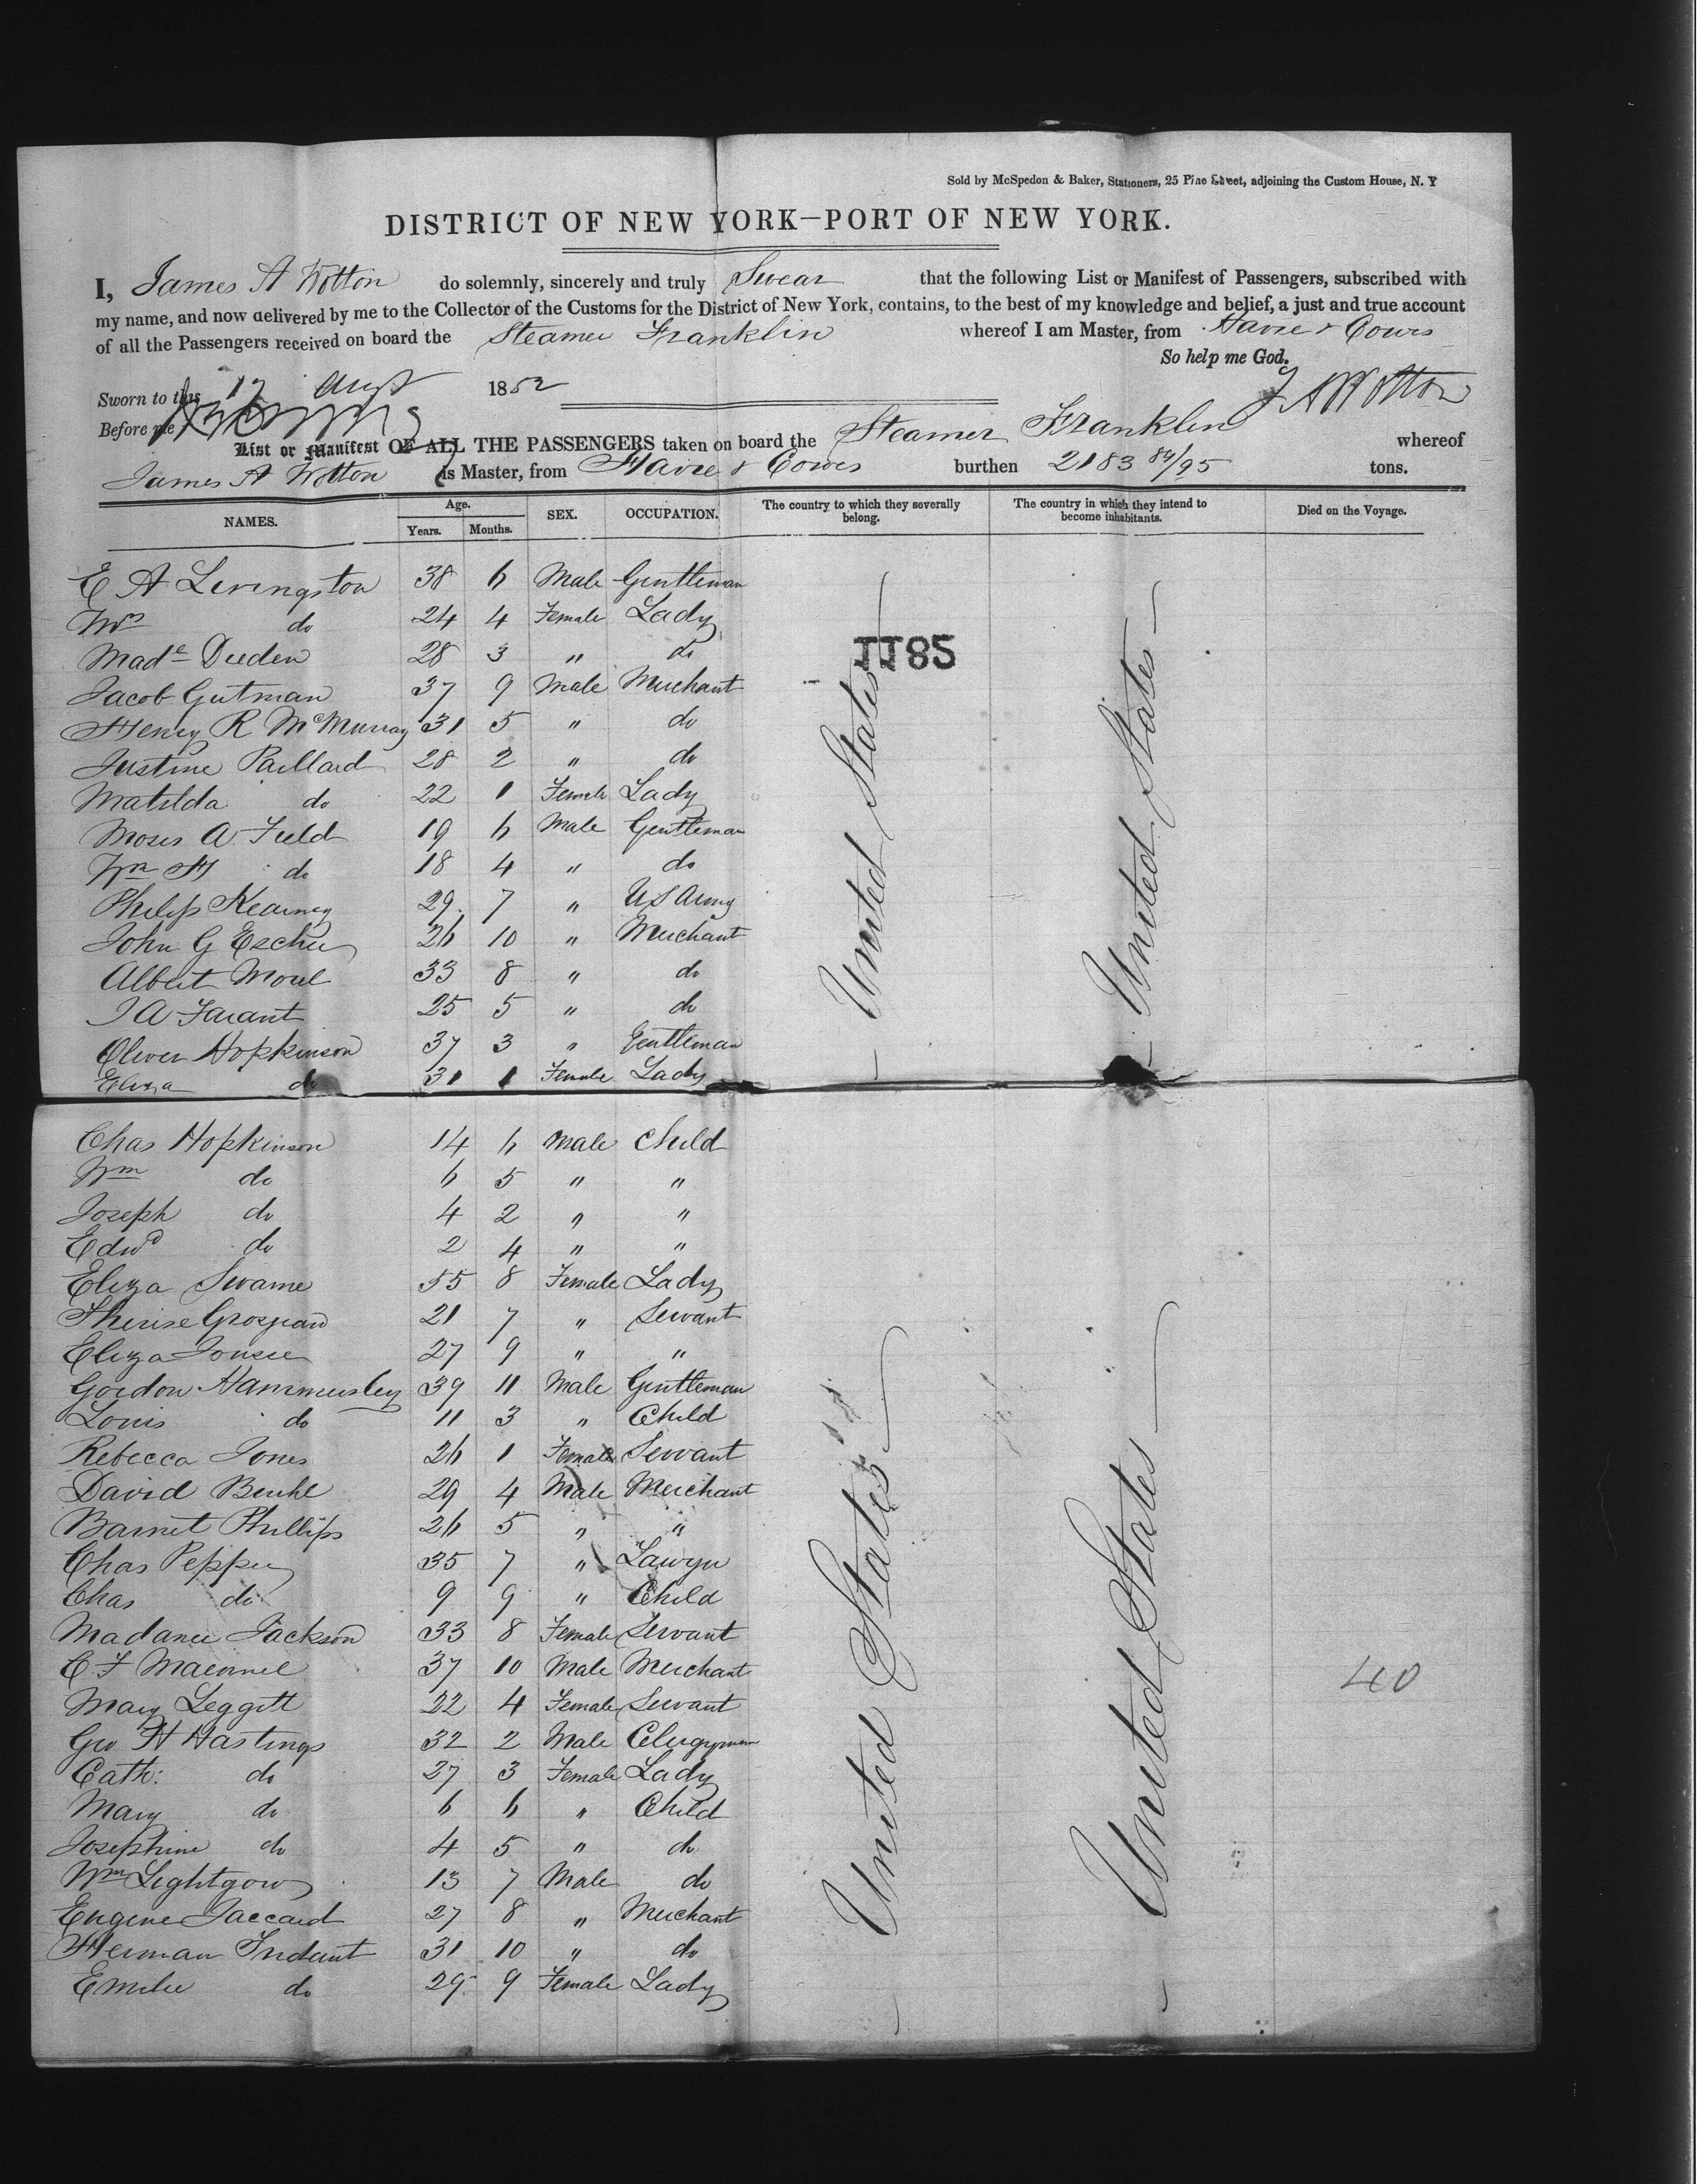 Sold by McSpedon & Baker, Stationers, 25 Pine Street, adjoining the Custom House, N. Y
DISTRICT OF NEW YORK—PORT OF NEW YORK.
I, James A Wotton do solemnly, sincerely and truly Swear that the following List or Manifest of Passengers, subscribed with
my name, and now delivered by me to the Collector of the Customs for the District of New York, contains, to the best of my knowledge and belief, a just and true account
of all the Passengers received on board the Steamer Franklin whereof I am Master, from Havre & Cowes
So help me God.
Sworn to this 12 Augt 1852
J A Wotton
Before me
List or Manifest OF ALL THE PASSENGERS taken on board the Steamer Franklin whereof
James A Wotton is Master, from Havre & Cowes burthen 2183 84/95 tons.
NAMES. Age. Years. Months. SEX. OCCUPATION. The country to which they severally belong. The country in which they intend to become inhabitants. Died on the Voyage.
E A Levingston 38 6 Male Gentleman
Mrs do 24 4 Female Lady
1182
Made Deeden 28 3 " do
Jacob Gutman 37 9 Male Merchant
Henry R McMurray 31 5 " do
Justine Paillard 28 2 " do
Matilda do 22 1 Female Lady
Moses A. Field 19 6 Male Gentleman
Wm H do 18 4 " do
Philip Kearney 29 7 " US Army
John G Escher 26 10 " Merchant
Albert Morel 33 8 " do
J A Farant 25 5 " do
Oliver Hopkinson 37 3 " Gentleman
Eliza do 31 1 Female Lady
United States United States
Chas Hopkinson 14 6 Male Child
Wm do 6 5 " "
Joseph do 4 2 " "
Edwd do 2 4 " "
Eliza Swame 55 8 Female Lady
Therise Grosjean 21 7 " Servant
Eliza 27 9 " "
Gordon Hammersley 39 11 Male Gentleman
Louis do 11 3 " Child
Rebecca Jones 26 1 Female Servant
David Beuhl 29 4 Male Merchant
Barnet Phillips 26 5 " "
Chas Pepper 35 7 " Lawyer
Chas do 9 9 " Child
Jackson 33 8 Female Servant
C F 37 10 Male Merchant
Mary Leggett 22 4 Female Servant
Geo H Hastings 32 2 Male Clergyman
Cath: do 27 3 Female Lady
Mary do 6 6 " Child
Josephine do 4 5 " do
Wm Lightgow 13 7 Male do
Eugene Jaccard 27 8 " Merchant
Herman Indant 31 10 " do
Emilie do 29 9 Female Lady
United States United States
40